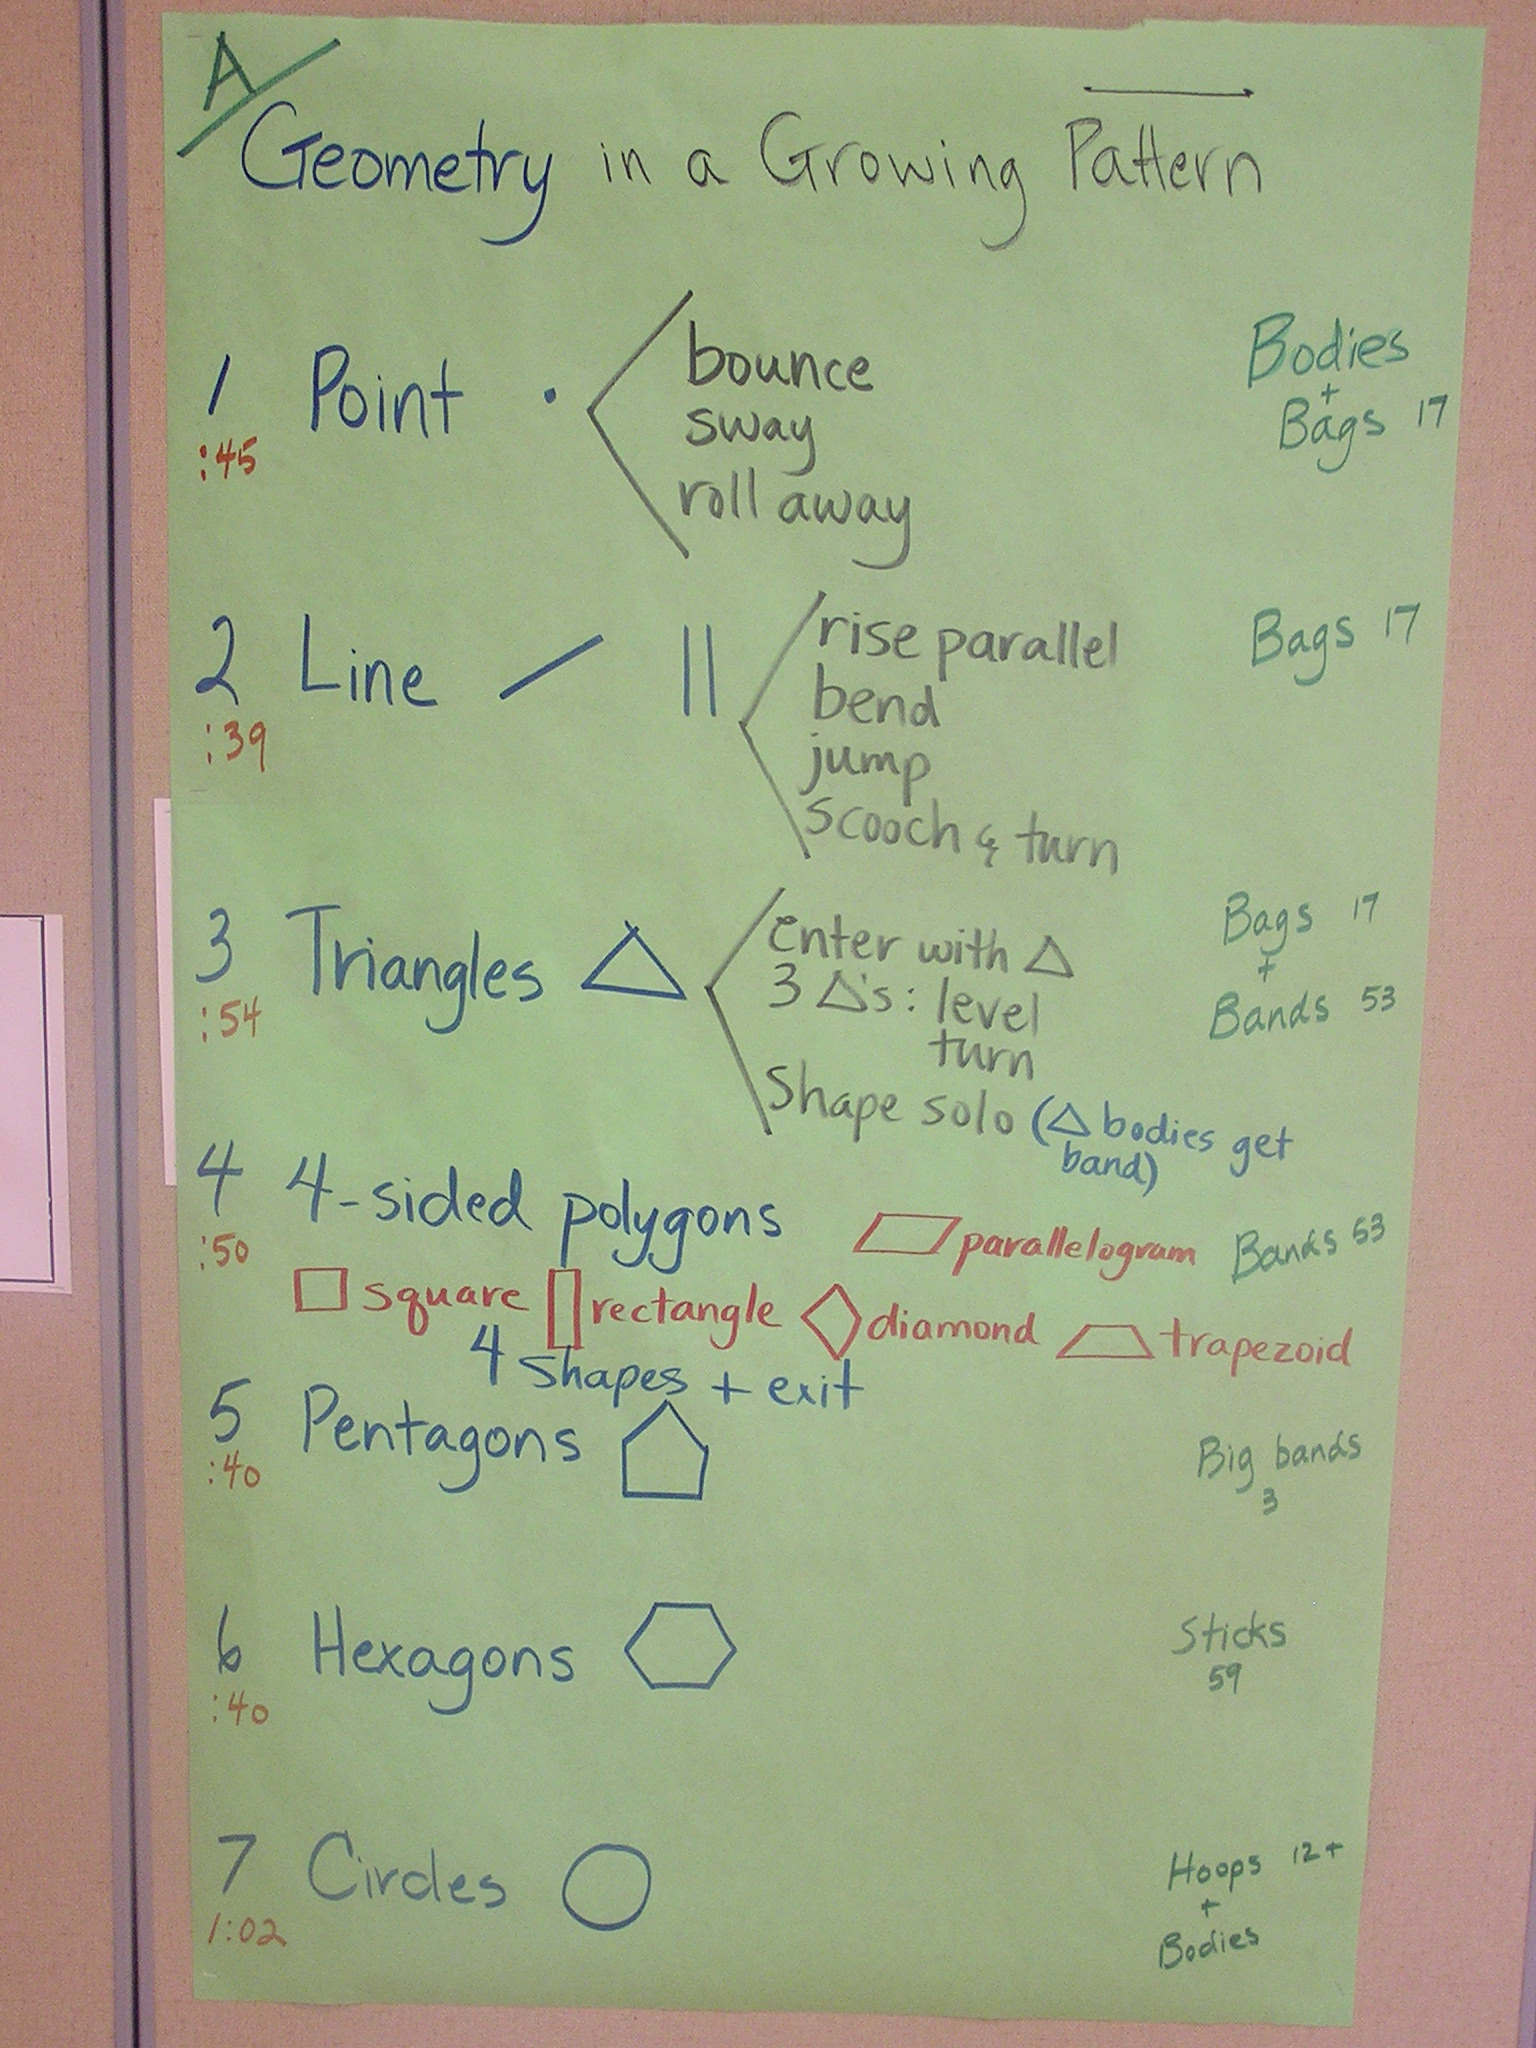 A
Geometry in a Growing Pattern
1 Point bounce Bodies
sway + Bags 17
:45
roll away
2 Line rise parallel Bags 17
bend
:39
jump
scooch & turn
3 Triangles enter with Bags 17
3 's: level + Bands 53
:54
turn
Shape solo ( bodies get
band)
4 4-sided polygons
:50
parallelogram Bands 53
square rectangle diamond trapezoid
4 shapes + exit
5 Pentagons Big bands
:40
3
6 Hexagons Sticks
59
:40
7 Circles Hoops 12+
+
1:02
Bodies